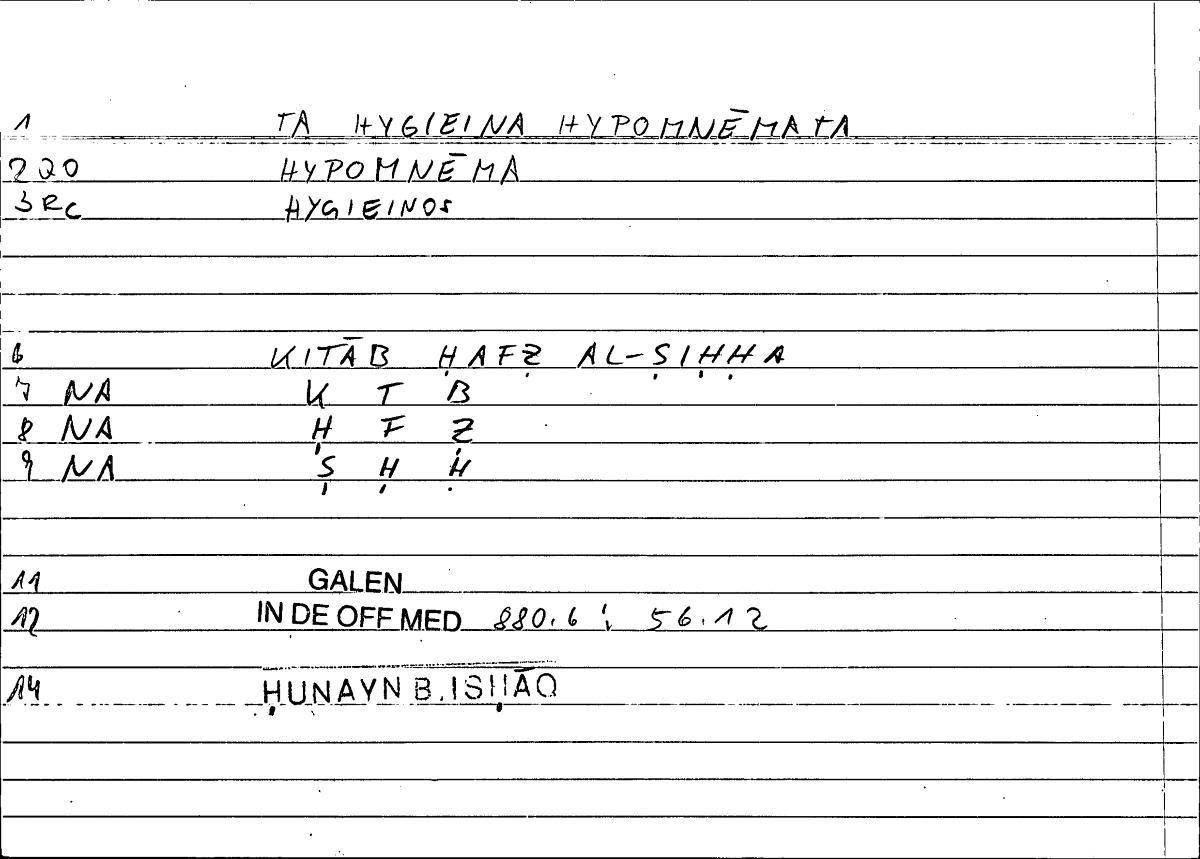 1 TA HYGIEINA HYPOMNĒMATA
2 QO HYPOMNĒMA
3 RC HYGIEINOS
6 KITĀB ḤAFẒ AL-ṢIḤḤA
7 NA K T B
8 NA Ḥ F Ẓ
9 NA Ṣ Ḥ Ḥ
11 GALEN
12 IN DE OFF MED 880.6 ; 56.12
14 ḤUNAYN B. ISḤĀQ